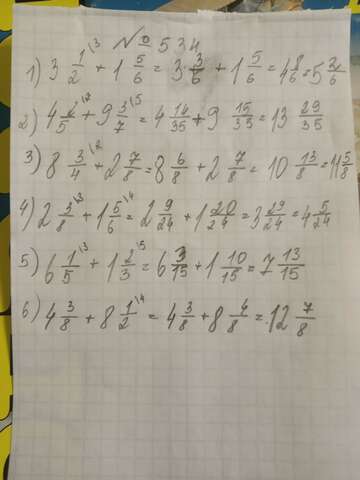 № 534
1) 3 1/2 \3 + 1 5/6 = 3 3/6 + 1 5/6 = 4 8/6 = 5 2/6
2) 4 2/5 \7 + 9 3/7 \5 = 4 14/35 + 9 15/35 = 13 29/35
3) 8 3/4 \2 + 2 7/8 = 8 6/8 + 2 7/8 = 10 13/8 = 11 5/8
4) 2 3/8 \3 + 1 5/6 \4 = 2 9/24 + 1 20/24 = 3 29/24 = 4 5/24
5) 6 1/5 \3 + 1 2/3 \5 = 6 3/15 + 1 10/15 = 7 13/15
6) 4 3/8 + 8 1/2 \4 = 4 3/8 + 8 4/8 = 12 7/8